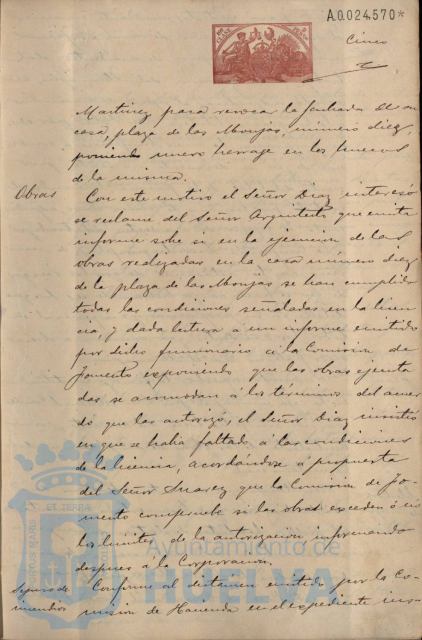 A.0.024.570*
Cinco
Martinez para revocar la fachada de su
casa, plaza de las Monjas, número diez,
poniendo nuevo herrage en los huecos
de la misma.
Obras
Con este motivo el Señor Diaz interesó
se reclame del Señor Arquitecto que emita
informe sobre si en la ejecucion de las
obras realizadas en la casa número diez
de la plaza de las Monjas se han cumplido
todas las condiciones señaladas en la licen
cia, y dada lectura á un informe emitido
por dicho funcionario á la Comision de
Fomento exponiendo que las obras ejecuta
das se acomodan á los términos del acuer
do que las autorizó, el Señor Diaz insistió
en que se habia faltado á las condiciones
de la licencia, acordándose á propuesta
del Señor Suarez que la Comision de Fo-
mento compruebe si las obras exceden ó nó
los límites de la autorizacion informando
despues á la Corporacion.
Conforme al dictamen emitido por la Co-
mision de Hacienda en el expediente ins-
Ayuntamiento de
HUELVA